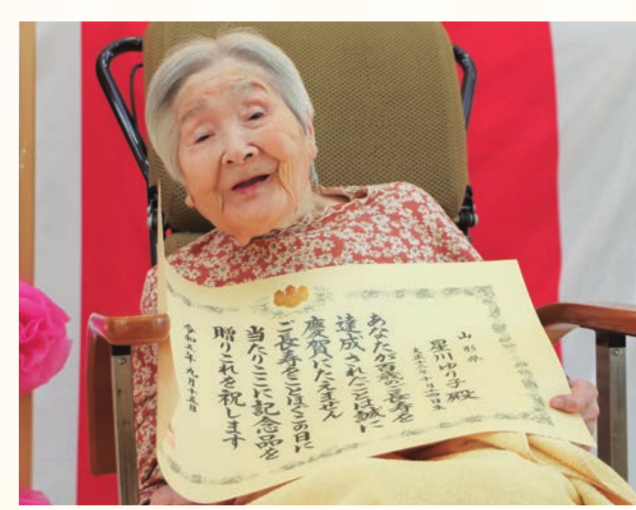 山形県
星川ゆり子殿
大正十二年十月十四日生
あなたが百歳のご長寿を
達成されたことは誠に
慶賀にたえません
ご長寿をことほぐこの日に
当たりここに記念品を
贈りこれを祝します
令和五年九月十五日